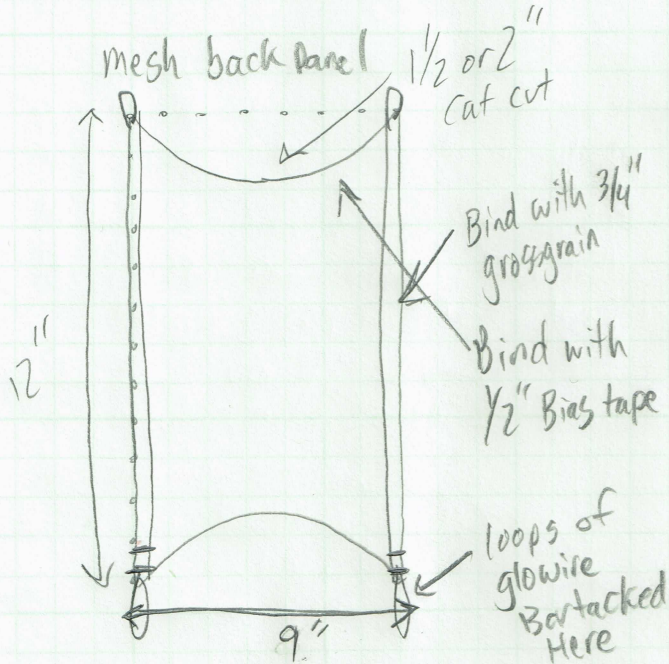 mesh back panel
1 1/2 or 2"
cat cut
Bind with 3/4"
grosgrain
12"
Bind with
1/2" Bias tape
loops of
glowire
Bartacked
Here
9"